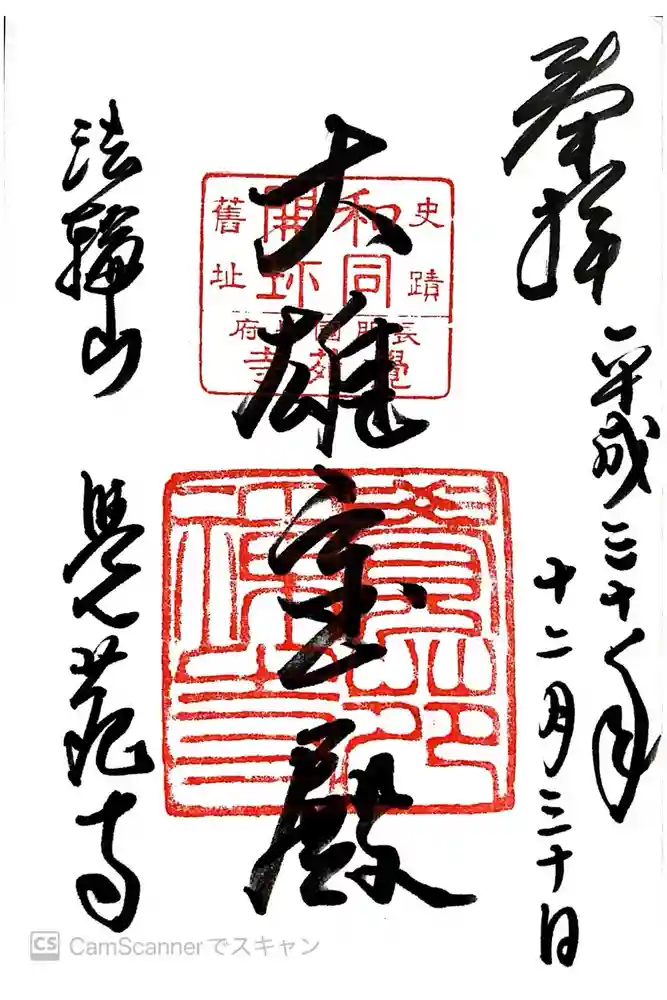 奉拝
平成三十年
十二月三十日
史蹟
和同
開珎
舊址
長門國長府
覺苑寺
大雄宝殿
法輪山
覚苑寺
CS CamScannerでスキャン